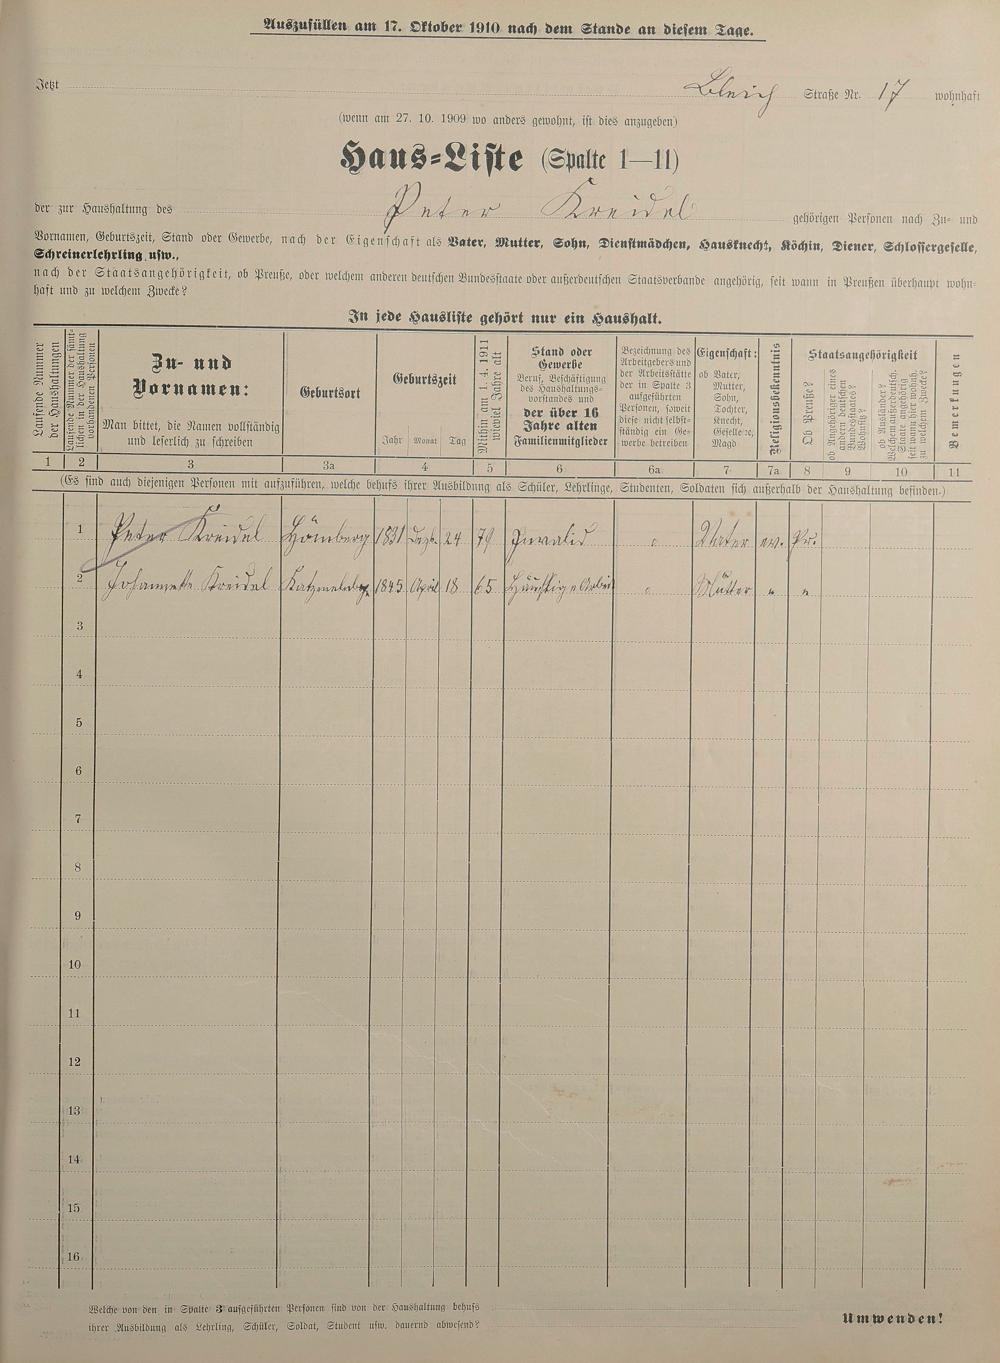 Auszufüllen am 17. Oktober 1910 nach dem Stande an diesem Tage.
Jetzt Bleich Straße Nr. 17 wohnhaft
(wenn am 27. 10. 1909 wo anders gewohnt, ist dies anzugeben)
Haus-Liste (Spalte 1—11)
der zur Haushaltung des Peter Kreidel gehörigen Personen nach Zu- und
Vornamen, Geburtszeit, Stand oder Gewerbe, nach der Eigenschaft als Vater, Mutter, Sohn, Dienstmädchen, Hausknecht, Köchin, Diener, Schlossergeselle,
Schreinerlehrling usw.,
nach der Staatsangehörigkeit, ob Preuße, oder welchem anderen deutschen Bundesstaate oder außerdeutschen Staatsverbande angehörig, seit wann in Preußen überhaupt wohn-
haft und zu welchem Zwecke?
In jede Hausliste gehört nur ein Haushalt.
Laufende Nummer
der Haushaltungen
Laufende Nummer der sämt-
lichen in der Haushaltung
vorhandenen Personen
Zu- und
Vornamen:
Man bittet, die Namen vollständig
und leserlich zu schreiben
Geburtsort
Geburtszeit
Jahr Monat Tag
Mithin am 1. 4. 1911
wieviel Jahre alt
Stand oder
Gewerbe
Beruf, Beschäftigung
des Haushaltungs-
vorstandes und
der über 16
Jahre alten
Familienmitglieder
Bezeichnung des
Arbeitgebers und
der Arbeitsstätte
der in Spalte 3
aufgeführten
Personen, soweit
diese nicht selbst-
ständig ein Ge-
werbe betreiben
Eigenschaft:
ob Vater,
Mutter,
Sohn,
Tochter,
Knecht,
Geselle ec,
Magd
Religionsbekenntnis
Staatsangehörigkeit
Ob Preuße?
ob Angehöriger eines
andern deutschen
Bundesstaates?
Wohnsitz?
ob Ausländer?
Welchem außerdeutsch.
Staate angehörig
seit wann hier wohnh.
zu welchem Zwecke?
Bemerkungen
1 2 3 3a 4 5 6 6a 7 7a 8 9 10 11
(Es sind auch diejenigen Personen mit aufzuführen, welche behufs ihrer Ausbildung als Schüler, Lehrlinge, Studenten, Soldaten sich außerhalb der Haushaltung befinden.)
1 Peter Kreidel Hömberg 1831 Dezb. 24 79 Invalid Vater ev. Pr.
2 Johannette Kreidel 1845 April 18 65 Mutter " "
3
4
5
6
7
8
9
10
11
12
13
14
15
16
Welche von den in Spalte 3 aufgeführten Personen sind von der Haushaltung behufs
ihrer Ausbildung als Lehrling, Schüler, Soldat, Student usw. dauernd abwesend?
Umwenden!